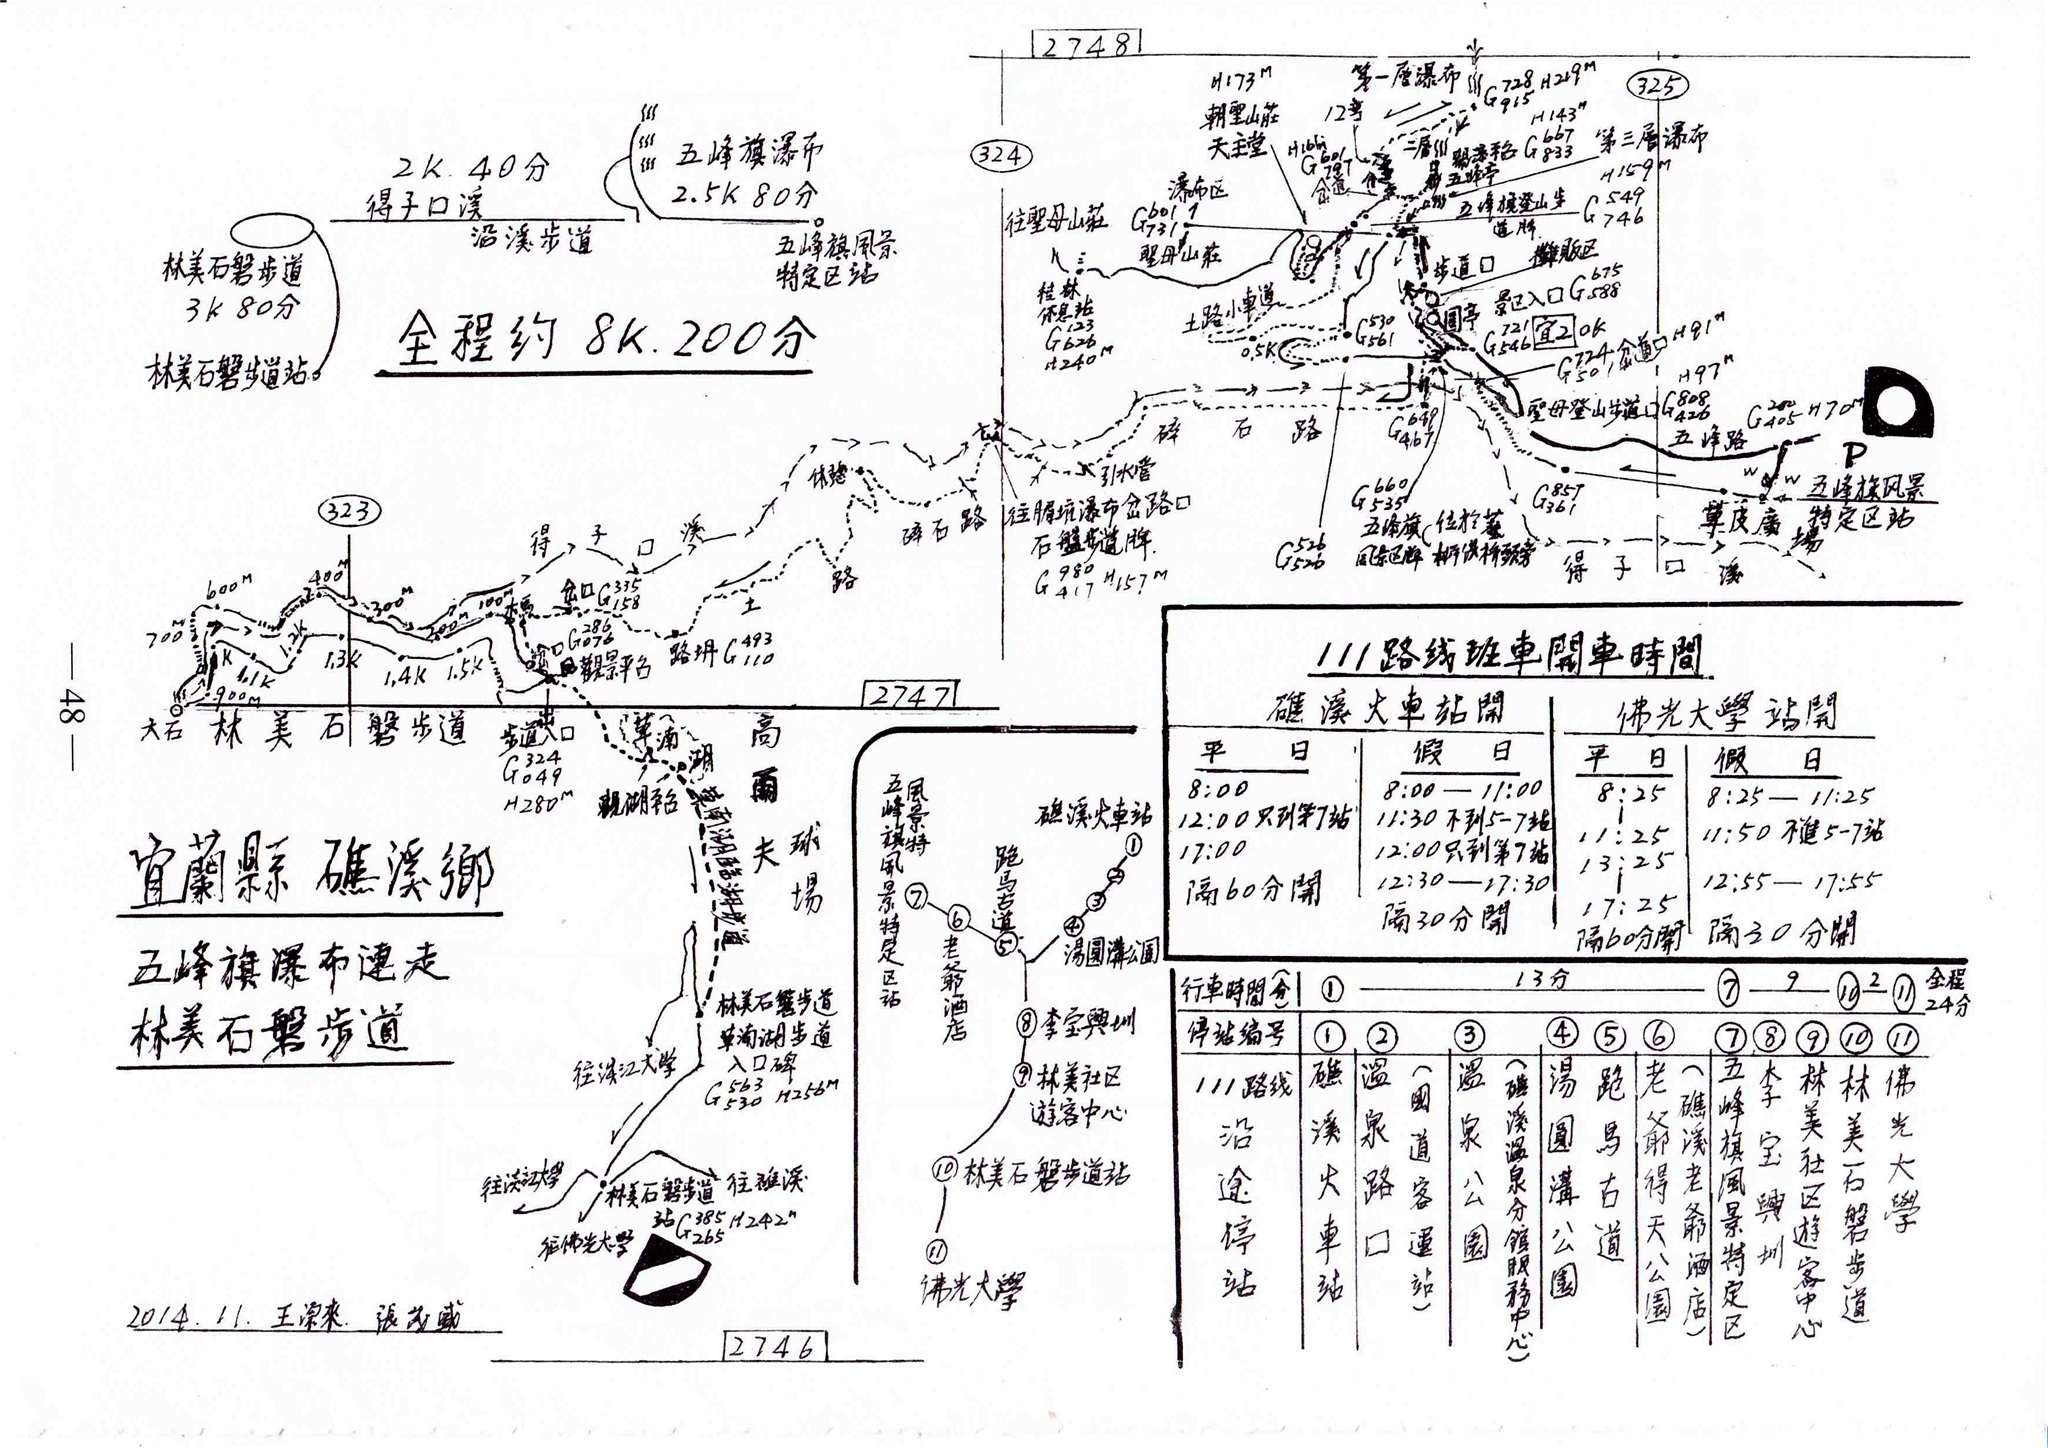 2748
324
325
323
2747
2746
— 48 —
2K.40分
得子口溪
沿溪步道
五峰旗瀑布
2.5K 80分
五峰旗風景
特定区站
林美石磐步道
3K 80分
林美石磐步道站
全程約 8K.200分
H173M
朝聖山莊
天主堂
第一層瀑布
G728 915 H219M
12亭
H143M
G667 833
第三層瀑布
H159M
二層
五峰亭
G549 746
五峰旗登山步
道牌
攤販区
步道口
G675 588
景区入口
圓亭
G721 546
宜2 0K
G724 501 岔道口 H91M
H97M
G808 426
聖母登山步道口
五峰路
G405 H70M
P
五峰旗风景
特定区站
草皮廣
場
瀑布区
G601 731
往聖母山莊
聖母山莊
桂林
休息站
G123 626
H240M
土路小車道
0.5K
G530 561
G649 467
碎石路
引水管
G660 535
五峰旗
G526 526
G857 361
得子口溪
往腳坑瀑布岔路口
石盤步道牌
G980 417 H157M
休憩
碎石路
得子口溪
土
路
路坍 G493 110
岔口 G335 158
G286 076
觀景平台
600M
400M
300M
200M
100M
700M
900M
1K
1.1K
1.2K
1.3K
1.4K
1.5K
大石
林美石磐步道
步道入口
G324 049
H280M
草湳湖
觀湖平台
草湳湖臨湖步道
高爾夫
球場
林美石磐步道
草湳湖步道
入口碑
G563 530 H256M
往淡江大学
往淡江大學
往佛光大學
往礁溪
林美石磐步道
站 G385 265 H242M
宜蘭縣 礁溪鄉
五峰旗瀑布連走
林美石磐步道
2014.11.
風景特
五峰旗風景特定区站
⑦
⑥ 老爺酒店
⑤ 跑馬古道
礁溪火車站
①
②
③
④
湯圍溝公園
⑧ 李宝興圳
⑨ 林美社区
遊客中心
⑩ 林美石磐步道站
⑪
佛光大學
111路线班車開車時間
礁溪火車站開
佛光大學站開
平日
假日
平日
假日
8:00
12:00 只到第7站
17:00
隔60分開
8:00—11:00
11:30 不到5-7站
12:00 只到第7站
12:30—17:30
隔30分開
8:25
11:25
13:25
17:25
隔60分開
8:25—11:25
11:50 不進5-7站
12:55—17:55
隔30分開
行車時間(分) ① 13分 ⑦ 9 ⑩ 2 ⑪ 全程
24分
停站編号 ① ② ③ ④ ⑤ ⑥ ⑦ ⑧ ⑨ ⑩ ⑪
111路线
沿途停站
礁溪火車站
溫泉路口
(國道客運站)
溫泉公園
(礁溪溫泉分館服務中心)
湯圍溝公園
跑馬古道
老爺得天公園
(礁溪老爺酒店)
五峰旗風景特定区
李宝興圳
林美社区遊客中心
林美石磐步道
佛光大學